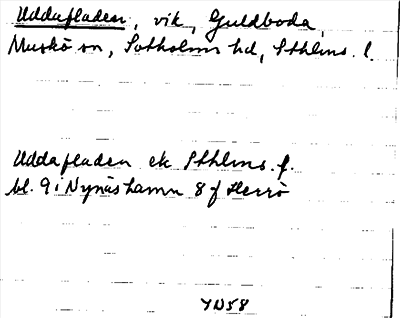 Uddafladen, vik, Guldboda,
Muskö sn, Sotholms hd, Sthlms. l.
Uddafladen ek Sthlms. l.
bl. 9i Nynäshamn 8 f Herrö
YD58